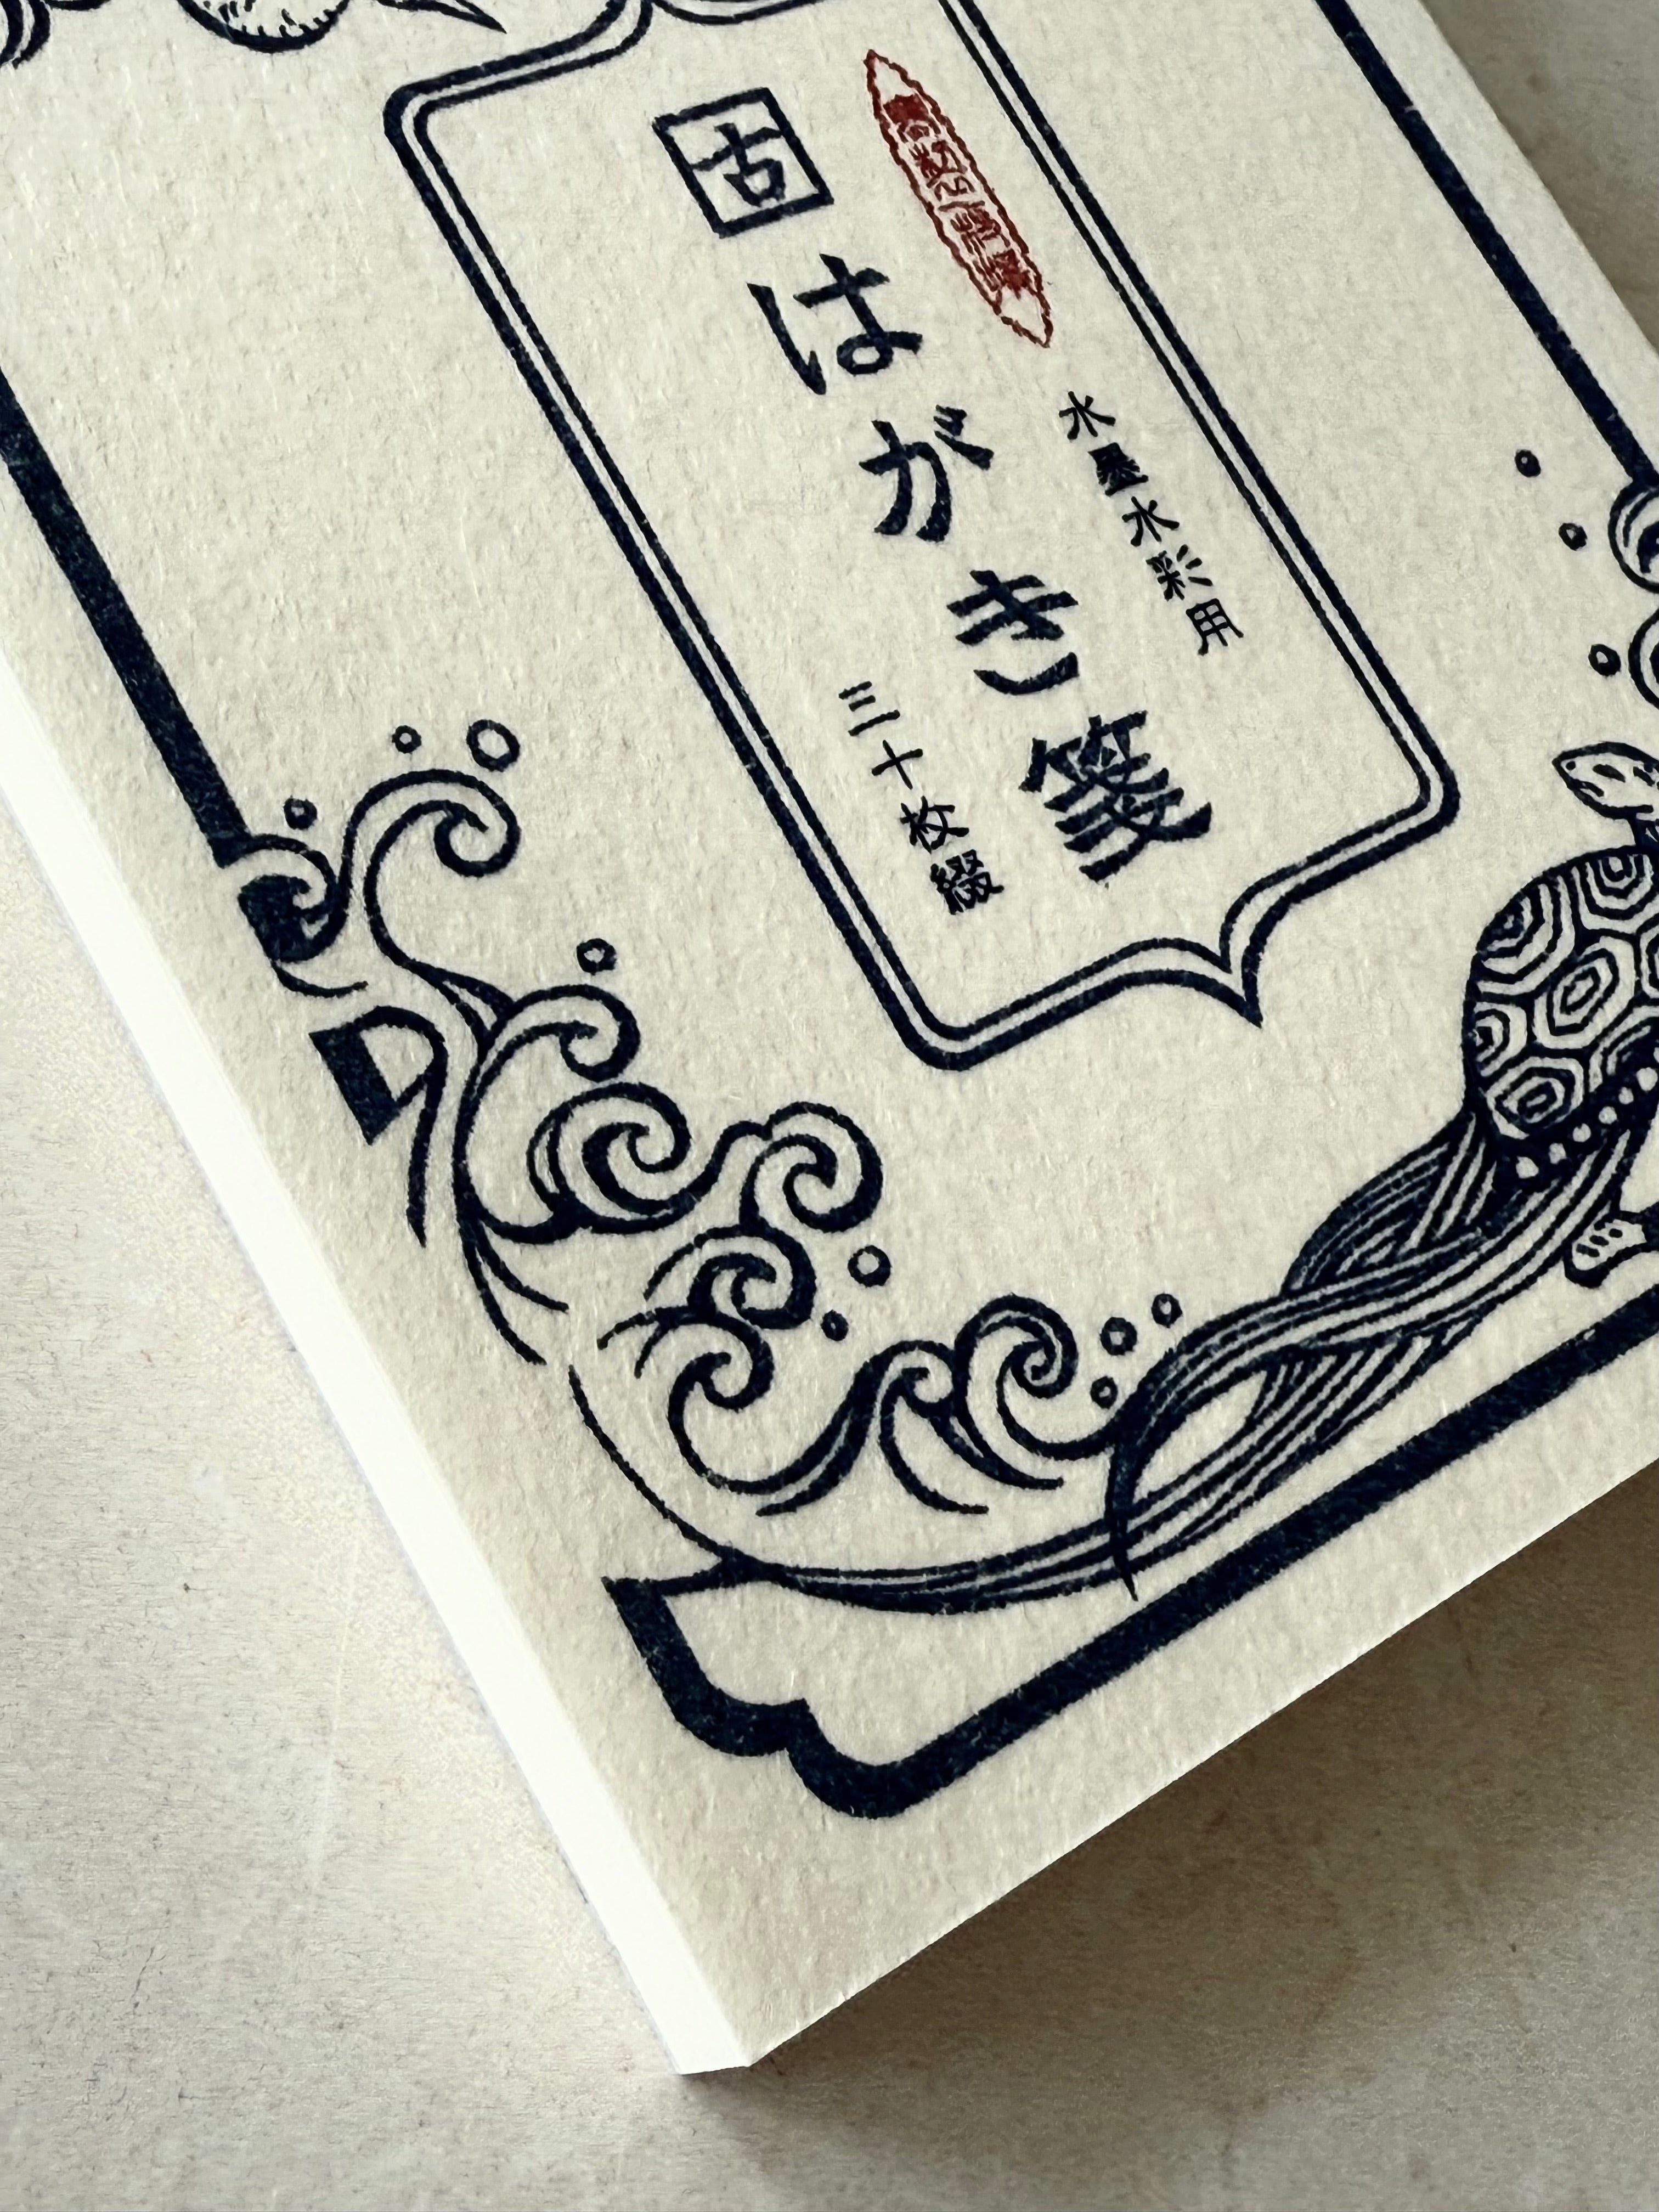 水墨水彩用
古はがき箋
三十枚綴